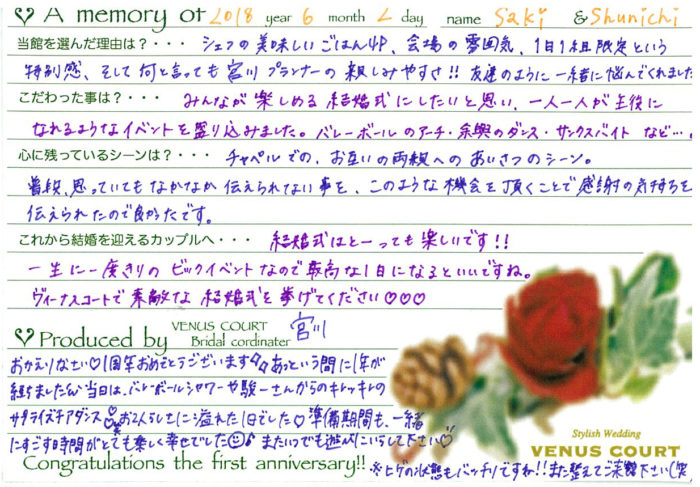 ♡ A memory of 2018 year 6 month 2 day name Saki & Shunichi
当館を選んだ理由は？・・・ シェフの美味しいごはんや、会場の雰囲気、1日1組限定という
特別感、そして何と言っても宮川プランナーの親しみやすさ!! 友達のように一緒に悩んでくれました
こだわった事は？・・・ みんなが楽しめる結婚式にしたいと思い、一人一人が主役に
なれるようなイベントを盛り込みました。バレーボールのアーチ・余興のダンス・サンクスバイト など…。
心に残っているシーンは？・・・ チャペルでの、お互いの両親へのあいさつのシーン。
普段、思っていてもなかなか伝えられない事を、このような機会を頂くことで感謝の気持ちを
伝えられたので良かったです。
これから結婚を迎えるカップルへ・・・ 結婚式はとーっても楽しいです!!
一生に一度きりのビックイベントなので最高な1日になるといいですね。
ヴィーナスコートで素敵な結婚式を挙げてください♡♡♡
♡ Produced by VENUS COURT Bridal cordinater 宮川
おかえりなさい♡1周年おめでとうございます あっという間に1年が
経ちましたね 当日は、バレーボールシャワーや駿一さんからのキレッキレの
サプライズチアダンス お2人らしさに溢れた1日でした♡準備期間も、一緒
にすごす時間がとても楽しく幸せでした またいつでも遊びにいらして下さい♡
Congratulations the first anniversary!! ※ヒゲの状態もバッチリですね!!また整えてご来館下さい(笑
Stylish Wedding
VENUS COURT